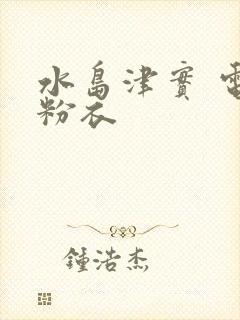 水島津實
粉衣
鍾浩杰